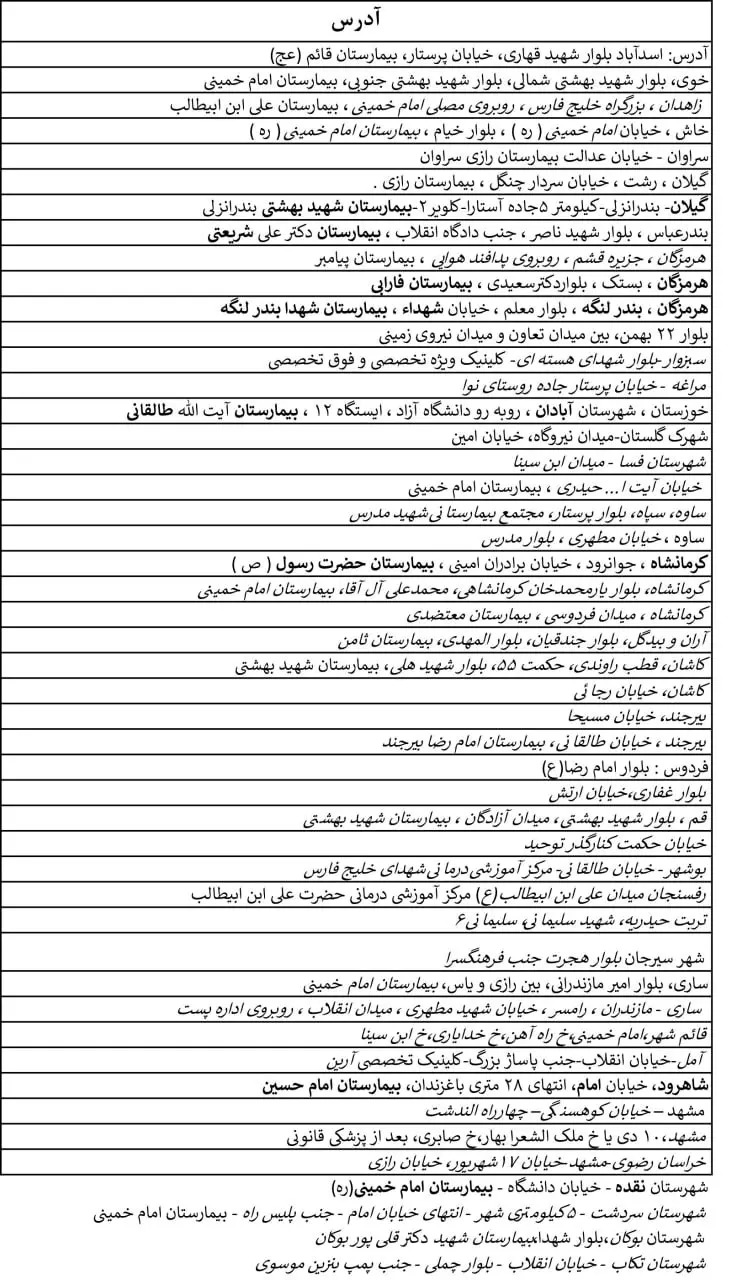 آدرس
آدرس: اسدآباد بلوار شهید قهاری، خیابان پرستار، بیمارستان قائم (عج)
خوی، بلوار شهید بهشتی شمالی، بلوار شهید بهشتی جنوبی، بیمارستان امام خمینی
زاهدان ، بزرگراه خلیج فارس ، روبروی مصلی امام خمینی ، بیمارستان علی ابن ابیطالب
خاش ، خیابان امام خمینی ( ره ) ، بلوار خیام ، بیمارستان امام خمینی ( ره )
سراوان - خیابان عدالت بیمارستان رازی سراوان
گیلان ، رشت ، خیابان سردار چنگل ، بیمارستان رازی .
گیلان- بندرانزلی-کیلومتر ۵جاده آستارا-کلویر۲-بیمارستان شهید بهشتی بندرانزلی
بندرعباس ، بلوار شهید ناصر ، جنب دادگاه انقلاب ، بیمارستان دکتر علی شریعتی
هرمزگان ، جزیره قشم ، روبروی پدافند هوایی ، بیمارستان پیامبر
هرمزگان ، بستک ، بلواردکترسعیدی ، بیمارستان فارابی
هرمزگان ، بندر لنگه ، بلوار معلم ، خیابان شهداء ، بیمارستان شهدا بندر لنگه
بلوار ۲۲ بهمن، بین میدان تعاون و میدان نیروی زمینی
سبزوار-بلوار شهدای هسته ای- کلینیک ویژه تخصصی و فوق تخصصی
مراغه - خیابان پرستار جاده روستای نوا
خوزستان ، شهرستان آبادان ، روبه رو دانشگاه آزاد ، ایستگاه ۱۲ ، بیمارستان آیت الله طالقانی
شهرک گلستان-میدان نیروگاه، خیابان امین
شهرستان فسا - میدان ابن سینا
خیابان آیت ا... حیدری ، بیمارستان امام خمینی
ساوه، سپاه، بلوار پرستار، مجتمع بیمارستا نی شهید مدرس
ساوه ، خیابان مطهری ، بلوار مدرس
کرمانشاه ، جوانرود ، خیابان برادران امینی ، بیمارستان حضرت رسول ( ص )
کرمانشاه، بلوار یارمحمدخان کرمانشاهی، محمدعلی آل آقا، بیمارستان امام خمینی
کرمانشاه ، میدان فردوسی ، بیمارستان معتضدی
آران و بیدگل، بلوار جندقیان، بلوار المهدی، بیمارستان ثامن
کاشان، قطب راوندی، حکمت ۵۵، بلوار شهید هلی، بیمارستان شهید بهشتی
کاشان، خیابان رجا ئی
بیرجند، خیابان مسیحا
بیرجند ، خیابان طالقا نی، بیمارستان امام رضا بیرجند
فردوس : بلوار امام رضا(ع)
بلوار غفاری،خیابان ارتش
قم ، بلوار شهید بهشتی، میدان آزادگان ، بیمارستان شهید بهشتی
خیابان حکمت کنارگذر توحید
بوشهر - خیابان طالقا نی- مرکز آموزشی درما نی شهدای خلیج فارس
رفسنجان میدان علی ابن ابیطالب(ع) مرکز آموزشی درمانی حضرت علی ابن ابیطالب
تربت حیدریه، شهید سلیما نی، سلیما نی۶
شهر سیرجان بلوار هجرت جنب فرهنگسرا
ساری، بلوار امیر مازندرانی، بین رازی و یاس، بیمارستان امام خمینی
ساری - مازندران ، رامسر ، خیابان شهید مطهری ، میدان انقلاب ، روبروی اداره پست
قائم شهر،امام خمینی،خ راه آهن،خ خدایاری،خ ابن سینا
آمل-خیابان انقلاب-جنب پاساژ بزرگ-کلینیک تخصصی آرین
شاهرود، خیابان امام، انتهای ۲۸ متری باغزندان، بیمارستان امام حسین
مشهد – خیابان کوهسنگی – چهارراه الندشت
مشهد،۱۰ دی یا خ ملک الشعرا بهار،خ صابری، بعد از پزشکی قانونی
خراسان رضوی-مشهد-خیابان ۱۷شهریور، خیابان رازی
شهرستان نقده - خیابان دانشگاه - بیمارستان امام خمینی(ره)
شهرستان سردشت - ۵کیلومتری شهر - انتهای خیابان امام - جنب پلیس راه - بیمارستان امام خمینی
شهرستان بوکان،بلوار شهدا،بیمارستان شهید دکتر قلی پور بوکان
شهرستان تکاب - خیابان انقلاب - بلوار چملی - جنب پمپ بنزین موسوی